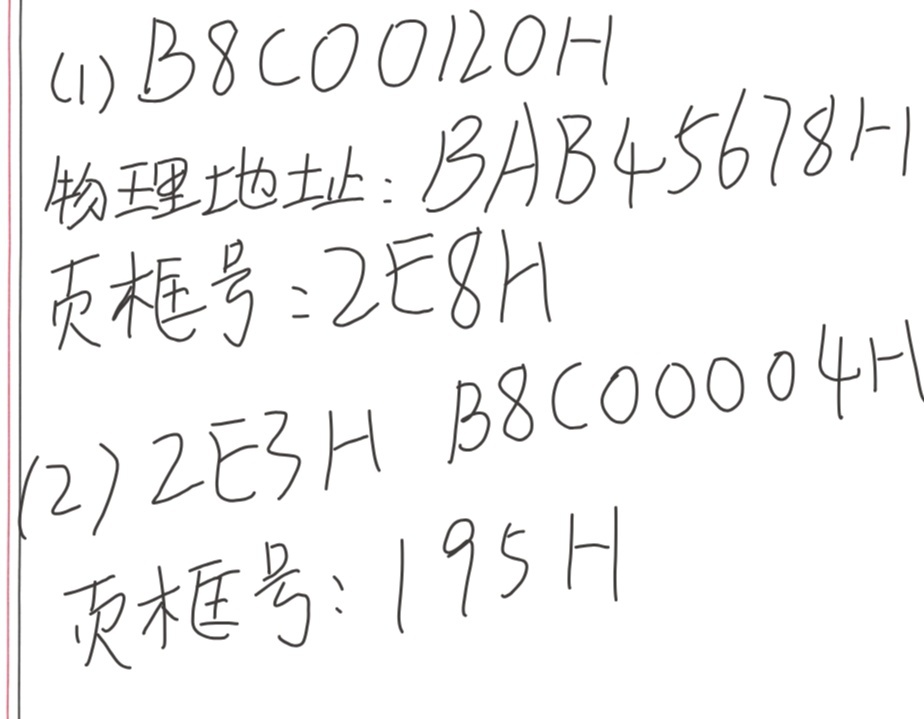 (1) B8C00120H
物理地址: BAB45678H
页框号: 2E8H
(2) 2E3H B8C00004H
页框号: 195H